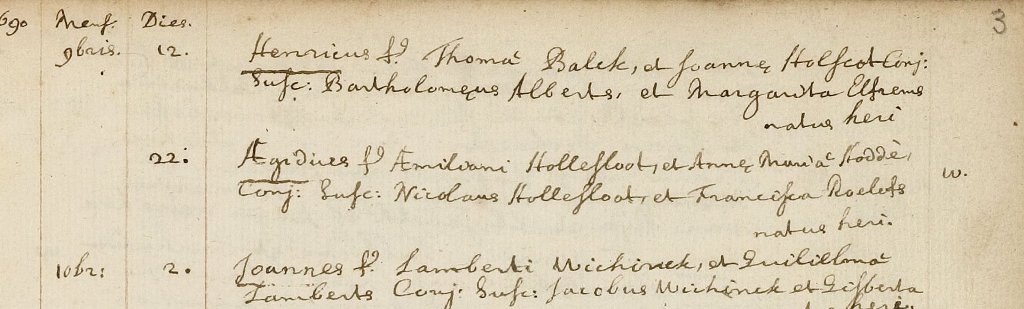 690 Mens. Dies. 3
9bris. 12. Henricus fs. Thomæ Balck, et Joannę Holscot Conj:
Susc: Bartholomęus Alberts, et Margarita Elsrems
natus heri
22: Ægidius fs Æmiliani Hollesloot, et Annę Mariæ Hodde,
Conj: Susc: Nicolaus Hollesloot, et Francisca Roelofs w.
natus heri.
10br: 2. Joannes fs. Lamberti Wichinck, et Guilielmæ
Lamberts Conj: Susc: Jacobus Wichinck et Gisberta